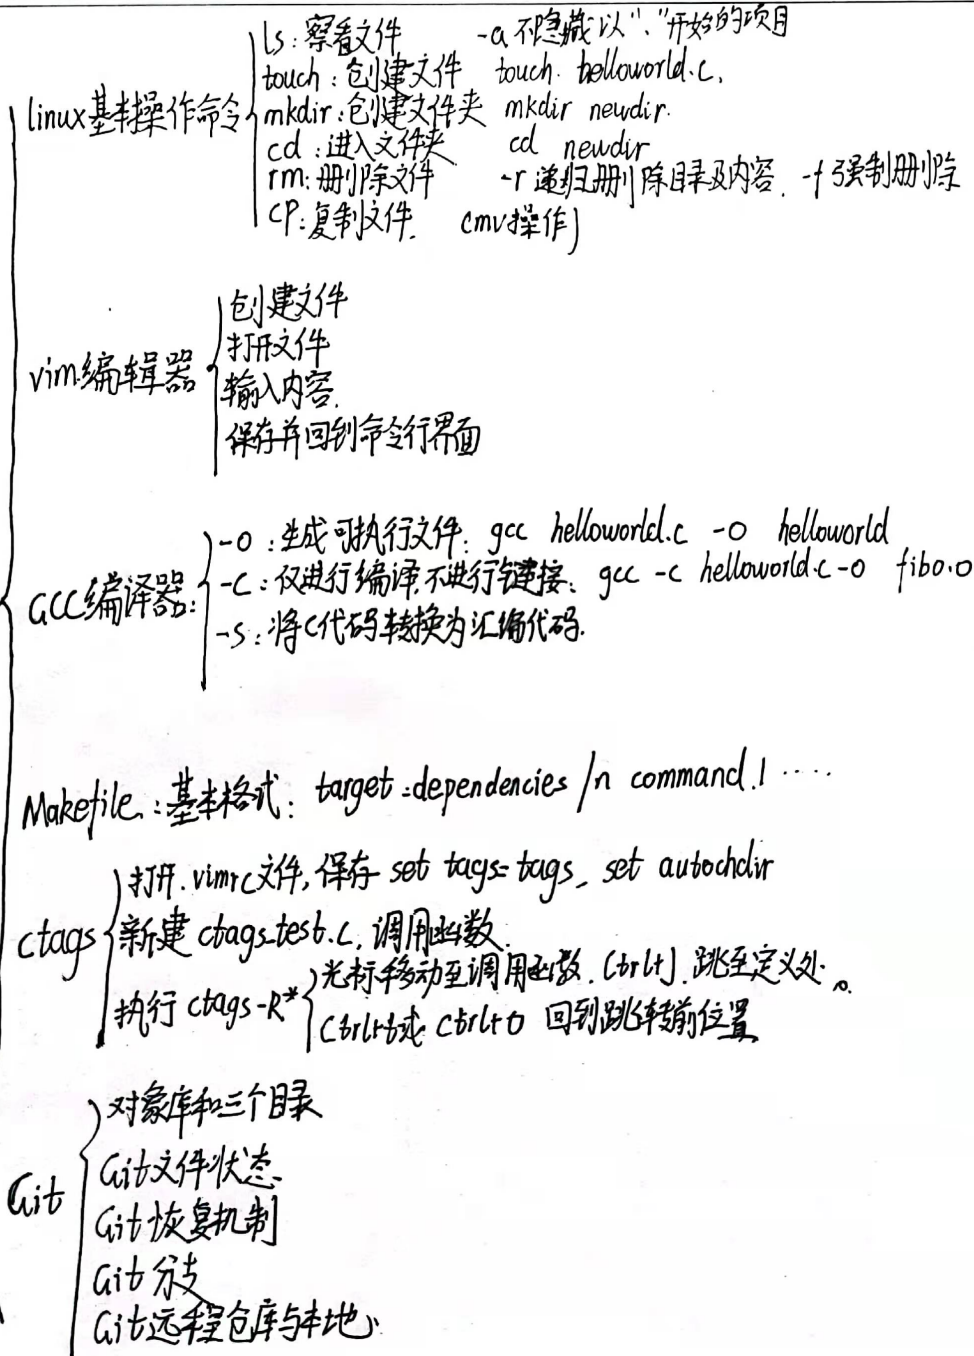 ls：察看文件 -a 不隐藏以"."开始的项目
touch：创建文件 touch helloworld.c.
linux基本操作命令
mkdir：创建文件夹 mkdir newdir.
cd：进入文件夹 cd newdir
rm：删除文件 -r 递归删除目录及内容. -f 强制删除
cp：复制文件. (mv操作)
创建文件
打开文件
vim编辑器
输入内容.
保存并回到命令行界面
-o：生成可执行文件：gcc helloworld.c -o helloworld
-c：仅进行编译.不进行链接：gcc -c helloworld.c -o fibo.o
GCC编译器：
-s：将C代码转换为汇编代码.
Makefile.：基本格式：target：dependencies /n command.1 ....
打开.vimrc文件,保存 set tags=tags, set autochdir
ctags
新建 ctags_test.c, 调用函数.
执行 ctags-R*
光标移动至调用函数. Ctrl+]. 跳至定义处.
Ctrl+t或 Ctrl+O 回到跳转前位置
对象库和三个目录
Git文件状态
Git
Git恢复机制
Git分支
Git远程仓库与本地.